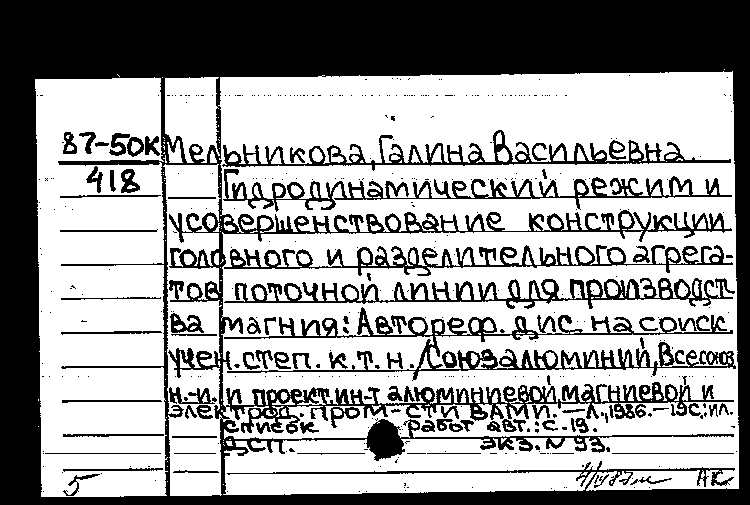 87-50К Мельникова, Галина Васильевна.
418 Гидродинамический режим и
усовершенствование конструкции
головного и разделительного агрега-
тов поточной линии для производст
ва магния: Автореф. дис. на соиск
учен. степ. к.т.н. /Союзалюминий, Всесоюз
н.-и. и проект. ин-т алюминиевой, магниевой и
электрод. пром-сти ВАМИ. - Л., 1986. - 19с.: ил.
Список работ авт.: с. 19.
ДСП. экз. N 93.
5 АК